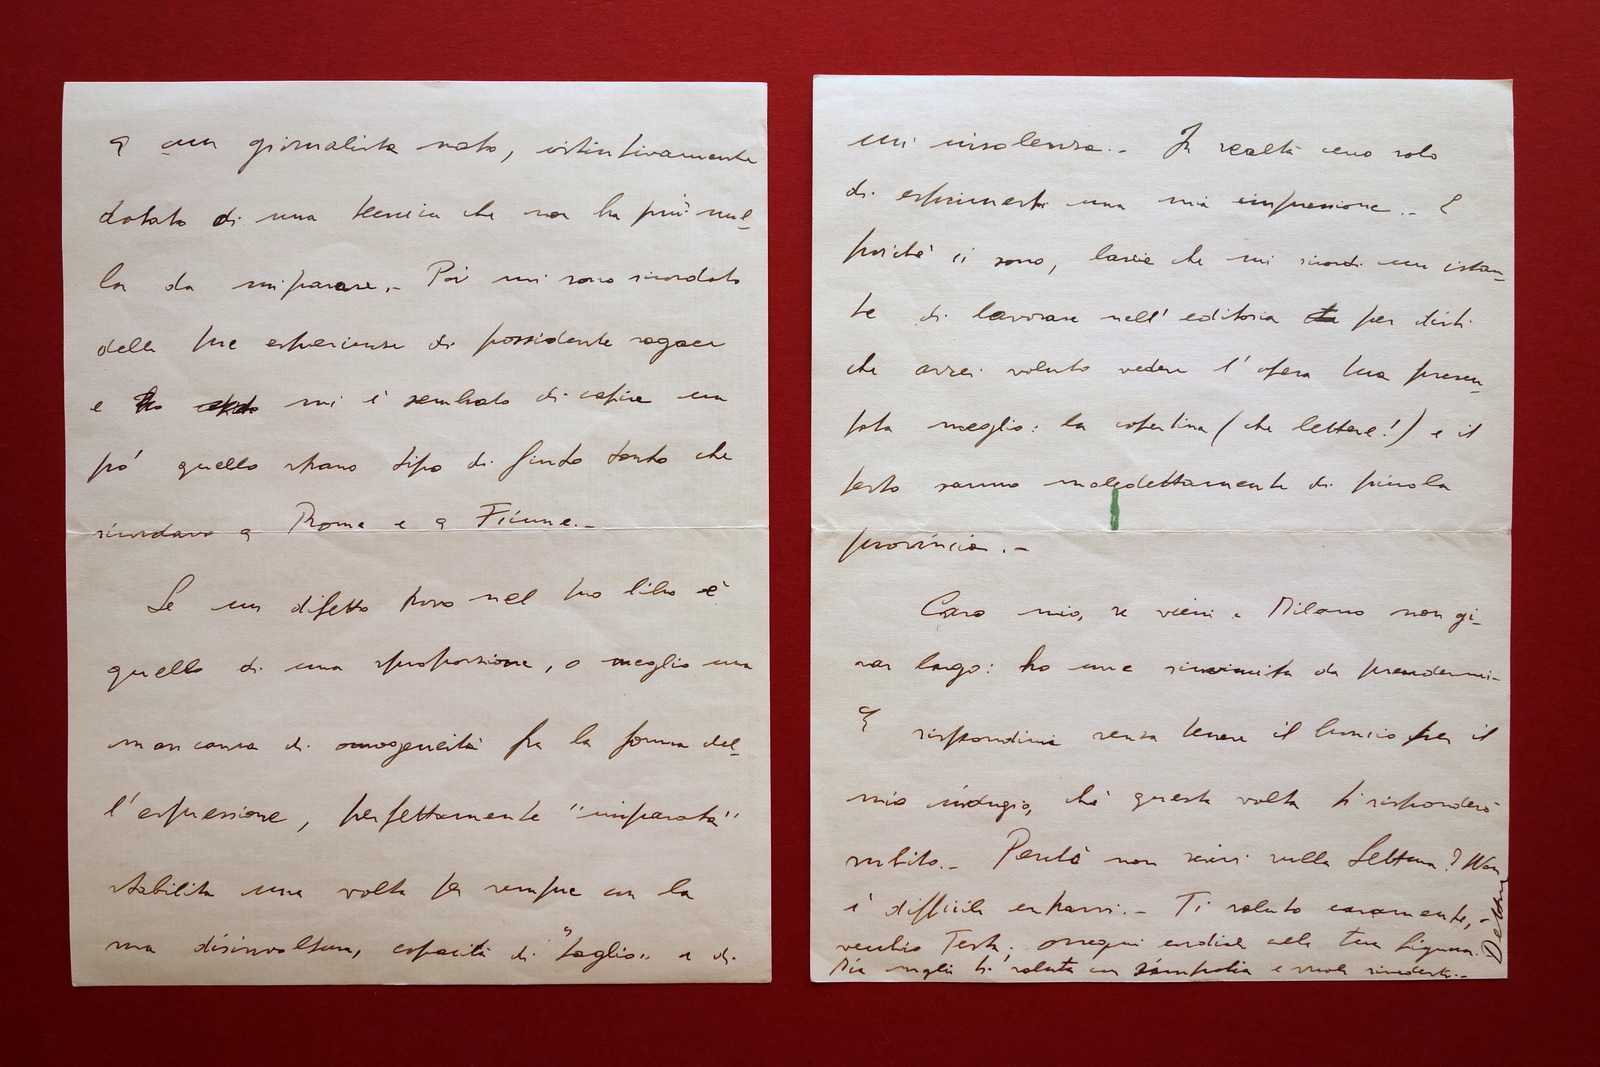 a un giornalista nato, istintivamente
dotato di una tecnica che non ha più nul-
la da imparare.- Poi mi sono ricordato
delle tue esperienze di possidente sagace
e mi è sembrato di capire un
po' quello strano tipo di Guido Testa che
ricordavo a Roma e a Fiume.-
Se un difetto trovo nel tuo libro è
quello di una sproporzione, o meglio una
mancanza di omogeneità fra la forma del-
l'espressione, perfettamente "imparata"
stabilita una volta per sempre con la
sua disinvoltura, capacità di "taglio" e di
mi insolenza.- In realtà cerco solo
di esprimerti una mia impressione.- E
poiché ci sono, lascia che mi ricordi un istan-
te di lavorare nell'editoria per dirti
che avrei voluto vedere l'opera tua presen-
tata meglio: la copertina (che lettere!) e il
testo sanno maledettamente di piccola
provincia.-
Caro mio, se vieni a Milano non gi-
rar largo: ho una rivincita da prendermi.
E rispondimi senza tenere il broncio per il
mio indugio, ché questa volta ti risponderò
subito.- Perché non scrivi sulla Lettura? Non
è difficile entrarvi.- Ti saluto caramente,
vecchio Testa; ossequi cordiali alla tua Signora.
Mia moglie ti saluta con simpatia e vuole rivederti.-